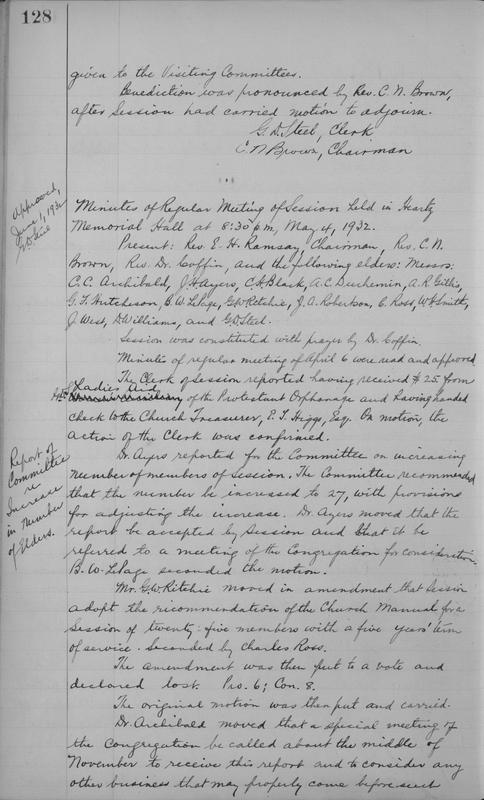 128
given to the Visiting Committees.
Benediction was pronounced by Rev. C. N. Brown,
after Session had carried motion to adjourn.
G. D. Steel, Clerk
C N Brown, Chairman
Approved,
June 1, 1932
Minutes of Regular Meeting of Session held in Heartz
Memorial Hall at 8:30 p.m., May 4, 1932.
Present: Rev. E. H. Ramsay, Chairman, Rev. C. N.
Brown, Rev. Dr. Coffin, and the following elders: Messrs:
C. C. Archibald, J. H. Ayers, C. H. Black, A. C. Duchemin, A. R. Gillis,
G. F. Hutcheson, B. W. LePage, G. W. Ritchie, J. A. Robertson, C. Ross, W. H. Smith,
J. West, D. Williams, and G. D. Steel.
Session was constituted with prayer by Dr. Coffin.
Minutes of regular meeting of April 6 were read and approved
The Clerk of Session reported having received $25 from
Ladies Aid
of the Protestant Orphanage and having handed
check to the Church Treasurer, E. T. Higgs, Esq. On motion, the
action of the Clerk was confirmed.
Report of
Committee
re
Increase
in Number
of Elders.
Dr. Ayers reported for the Committee on increasing
number of members of Session. The Committee recommended
that the number be increased to 27, with provisions
for adjusting the increase. Dr. Ayers moved that the
report be accepted by Session and that it be
referred to a meeting of the Congregation for consideration.
B. W. LePage seconded the motion.
Mr. G. W. Ritchie moved in amendment that Session
adopt the recommendation of the Church Manual for a
Session of twenty-five members with a five years' term
of service. Seconded by Charles Ross.
The amendment was then put to a vote and
declared lost. Pro. 6; Con. 8.
The original motion was then put and carried.
Dr. Archibald moved that a special meeting of
the Congregation be called about the middle of
November to receive this report and to consider any
other business that may properly come before such